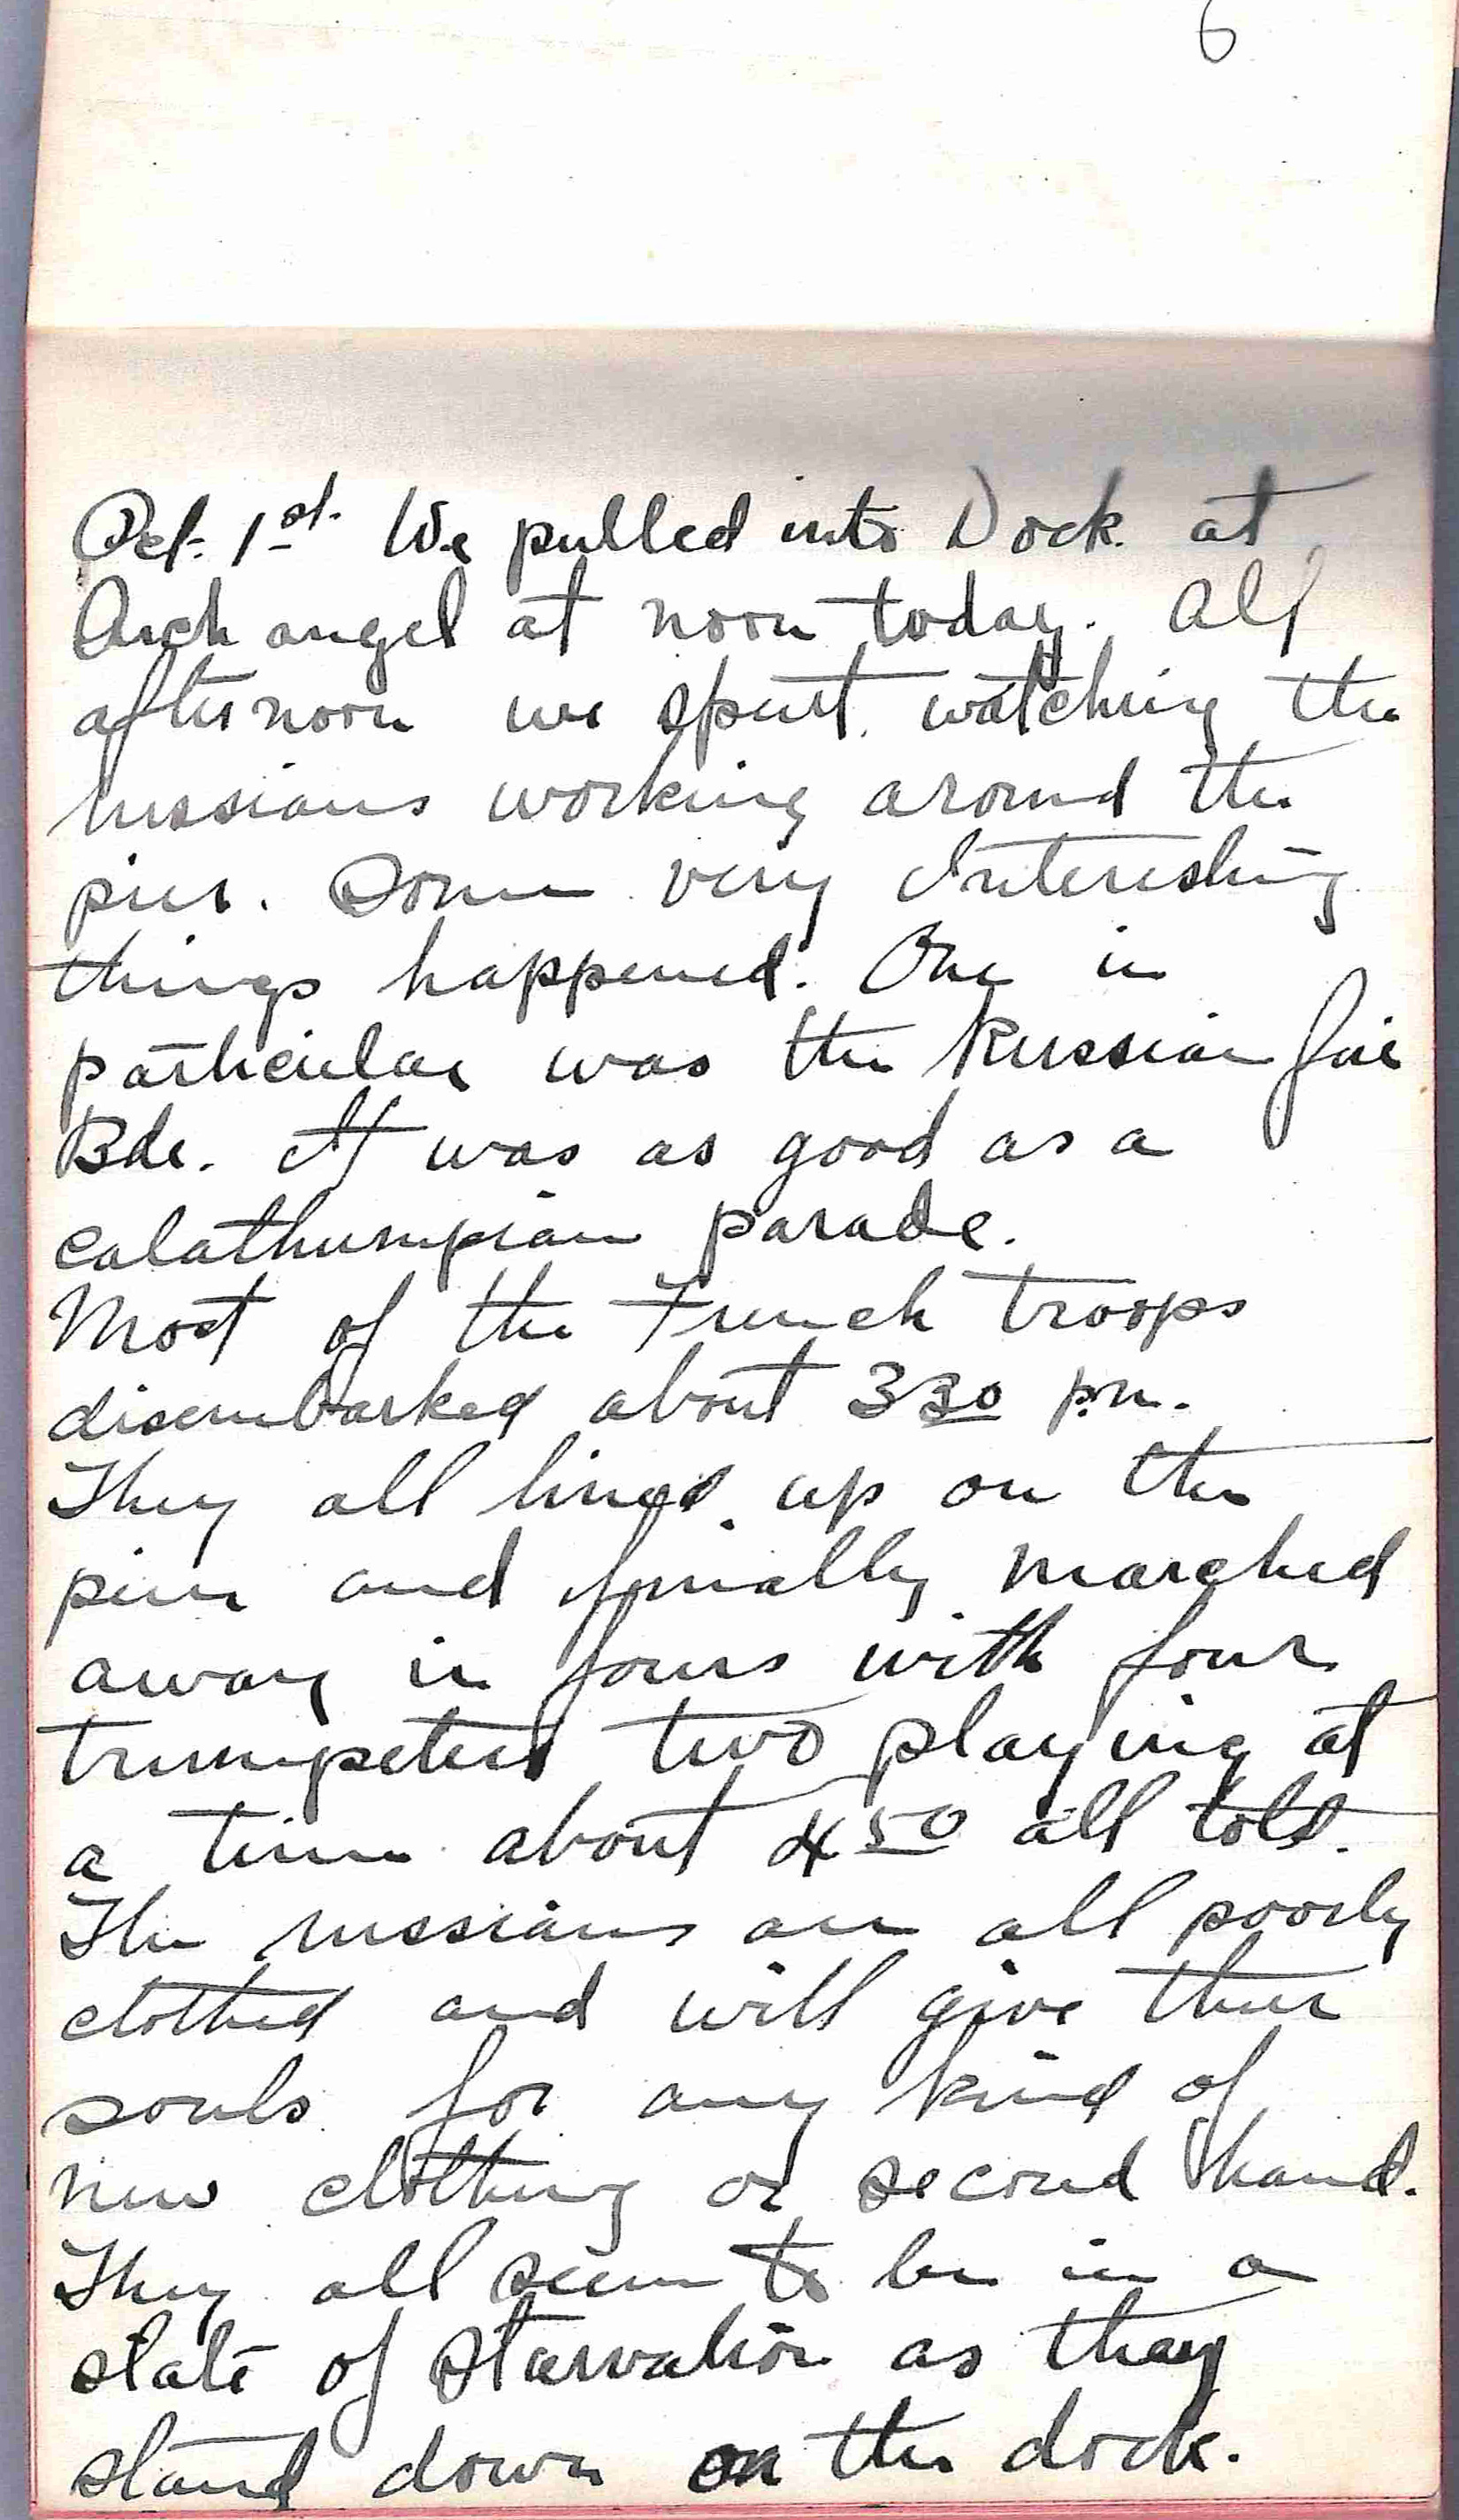 6
Oct. 1st. We pulled into Dock at
Archangel at noon today. All
afternoon we spent watching the
russians working around the
pier. Some very Interesting
things happened. One in
particular was the Russian fire
Bde. It was as good as a
calathumpian parade.
Most of the French troops
disembarked about 330 p.m.
They all lined up on the
pier and finally marched
away in fours with four
trumpeters two playing at
a time about 450 all told.
The russians are all poorly
clothed and will give their
souls for any kind of
new clothing or second hand.
They all seem to be in a
state of starvation as they
stand down on the dock.